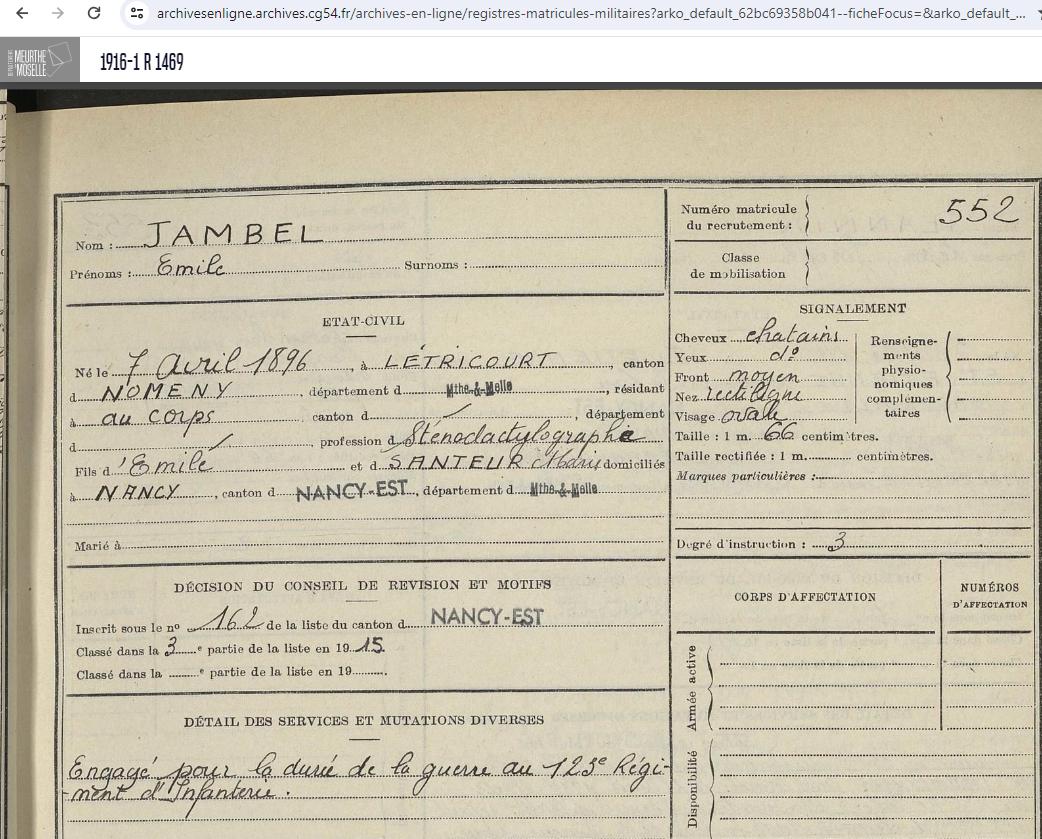 archivesenligne.archives.cg54.fr/archives-en-ligne/registres-matricules-militaires?arko_default_62bc69358b041--ficheFocus=&arko_default_...
MEURTHE & MOSELLE
1916-1 R 1469
Nom : JAMBEL
Prénoms : Emile Surnoms :
ETAT-CIVIL
Né le 7 Avril 1896, à LÉTRICOURT, canton
d NOMENY, département d Mthe-&-Melle, résidant
à au corps canton d, département
d, profession d Sténodactylographe
Fils d'Emile et d SANTEUR Marie domiciliés
à NANCY, canton d NANCY-EST, département d Mthe-&-Melle
Marié à
DÉCISION DU CONSEIL DE REVISION ET MOTIFS
Inscrit sous le nº 162 de la liste du canton d NANCY-EST
Classé dans la 3e partie de la liste en 1915.
Classé dans la e partie de la liste en 19.
DÉTAIL DES SERVICES ET MUTATIONS DIVERSES
Engagé pour la durée de la guerre au 123e Régi-
-ment d'Infanterie.
Numéro matricule
du recrutement : 552
Classe
de mobilisation
SIGNALEMENT
Cheveux chatains
Yeux dº
Front moyen
Nez rectiligne
Visage ovale
Renseigne-
ments
physio-
nomiques
complémen-
taires
Taille : 1 m. 66 centimètres.
Taille rectifiée : 1 m. centimètres.
Marques particulières :
Degré d'instruction : 3
CORPS D'AFFECTATION
NUMÉROS
D'AFFECTATION
Armée active
Disponibilité